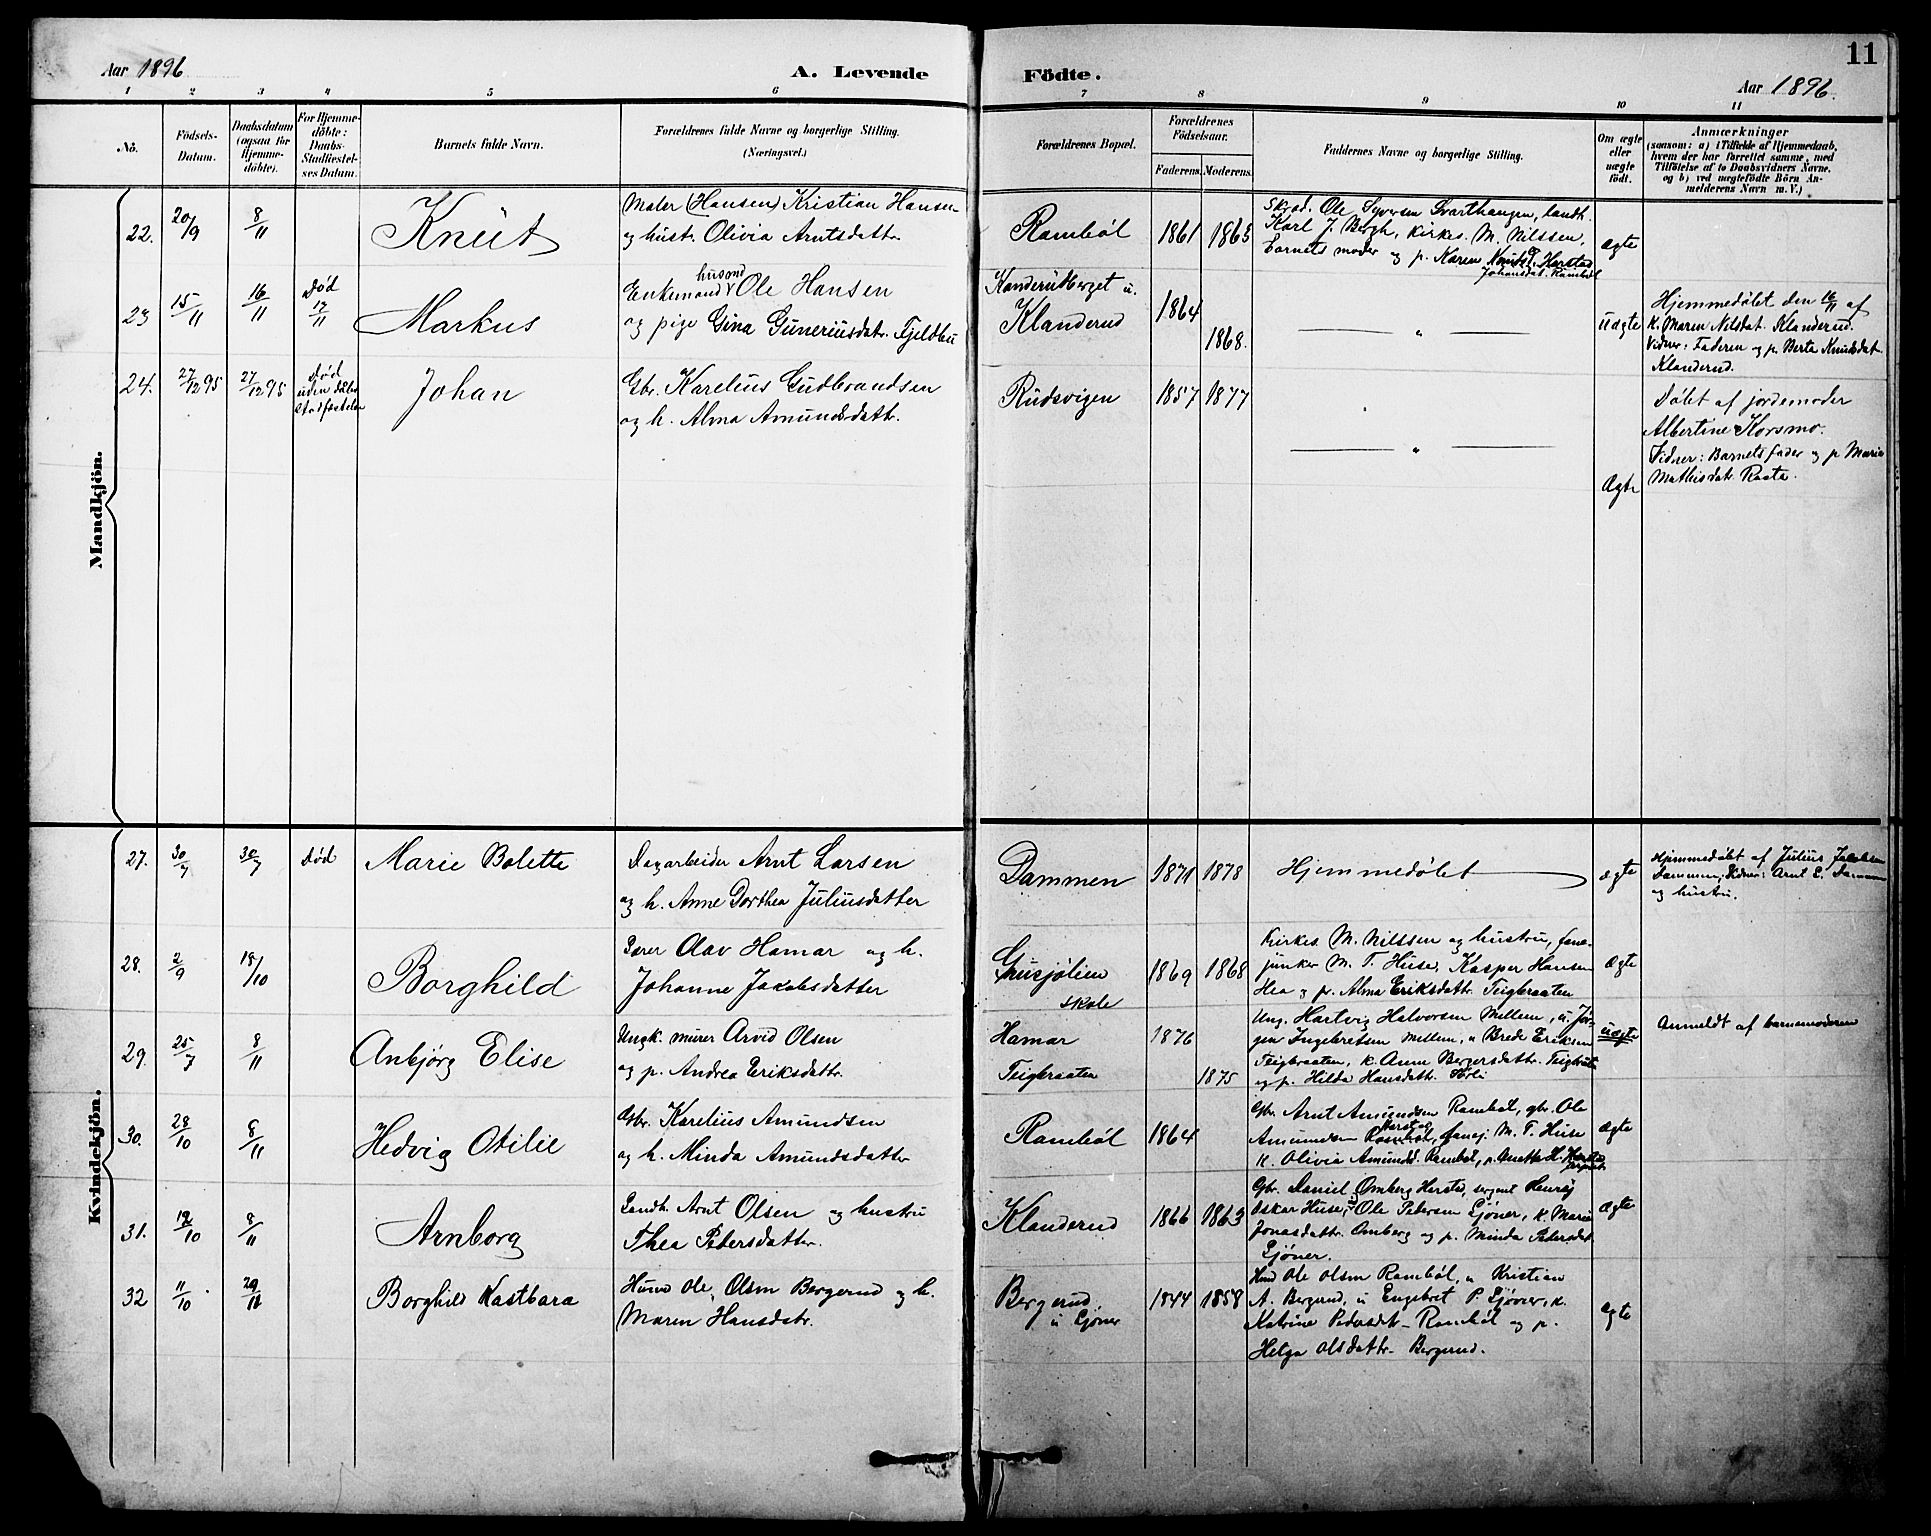 11
Aar 1896
A. Levende Födte.
Aar 1896.
1 2 3 4 5 6 7 8 9 10 11
No.
Födsels-
Datum.
Daabsdatum
(ogsaa for
Hjemme-
döbte).
For Hjemme-
döbte:
Daabs-
Stadfæstel-
ses Datum.
Barnets fulde Navn.
Forældrenes fulde Navne og borgerlige Stilling.
(Næringsvei.)
Forældrenes Bopæl.
Forældrenes
Födselsaar.
Faderens. Moderens.
Faddernes Navne og borgerlige Stilling.
Om ægte
eller
uægte
födt.
Anmærkninger
(saasom: a) i Tilfælde af Hjemmedaab,
hvem der har forrettet samme, med
Tilföielse af to Daabsvidners Navne,
og b) ved uægtefödte Börn An-
melderens Navn m. V.)
Mandkjön.
22.
20/9
8/11
Knut
Maler (Hansen) Kristian Hansen
og hustr. Olivia Arntsdattr.
Rambøl
1861
1863
Skræd. Ole Syversen Svarthaugen, landh.
Karl J. Bergh, Kirkes. M. Nilssen,
barnets moder og p. Karen Harstad
Johansdat. Rambøl
ægte
23
15/11
16/11
Død
17/11
Markus
husmd
Enkemand Ole Hansen
og pige Gina Guneriusdatr. Fjeldbu
Klanderud
1864
1868.
"
uægte
Hjemmedøbt den 16/11 af
K. Maren Nilsdat. Klanderud.
Vidner: Faderen og p. Berte Knudsdat.
Klanderud.
24.
27/12 95
27/12 95
Død
uden daabs
stadfæstelse
Johan
Gbr. Karelius Gudbrandsen
og h. Alma Amundsdattr.
Rudsvigen
1857
1877
"
Ægte
Døbt af jordemoder
Albertine Korsmo.
Vidner: Barnets fader og p Marie
Mathisdatr. Raata.
Kvindekjön.
27.
30/7
30/7
Død
Marie Bolette
Dagarbeider Arnt Larsen
og h. Anne Dorthea Juliusdatter
Dammen
1871
1878
Hjemmedøbt
ægte
Hjemmedøbt af Julius Jakobsen
Dammen, Vidner: Arnt L. Dammen
og hustru.
28.
2/9
18/10
Borghild
Lærer Olav Hamar og h.
Johanne Jakobsdatter
Gjusjølien
skole
1869
1868
Kirkes. M. Nilssen og hustru, fane-
junker M. T. Huse, Kasper Hansen
Hea og p. Alma Eriksdattr. Teigbraaten
Ægte
29.
25/7
8/11
Anbjørg Elise
Ungk. murer Arvid Olsen
og p. Andrea Eriksdattr.
Hamar
Teigbraaten
1876
1875
Ung. Hartvig Halvorsen Mellem, u Jør-
gen Ingebretsen Mellem, u Brede Eriksen
Teigbraaten, k. Anne Bergersdattr. Teigbraat.
og p. Hilda Hansdattr. Sorli
uægte
Anmeldt af barnemoderen
30.
28/10
8/11
Hedvig Otilie
Gbr. Karelius Amundsen
og h. Minda Amundsdatter
Rambøl
1864
Gbr. Arnt Amundsen Rambøl, gbr. Ole
Amundsen Harstad, fanej. M. T. Huse
K. Olivia Amundsd. Rambøl, p. Anette H.
Ægte
31.
8/11
Arnborg
Landh. Arnt Olsen og hustru
Thea Petersdattr.
Klanderud
1866
1863
Gbr. Daniel Omberg Hersta, sergent Henrij
Oskar Huse, Ole Petersen Sjøner, k. Marie
Jonasdattr. Omberg og p. Minda Petersdat.
Sjøner.
Ægte
32
11/10
29/11
Borghild Kastbara
Husmd Ole Olsen Bergerud og h.
Maren Hansdatr.
Bergerud
u Sjøner
1844
1858
Hmd Ole Olsen Rambøl, u Kristian
A. Bergerud, u Engebret P. Sjøner, k.
Katrine Pedersdt. Rambøl og p.
Helga Olsdattr. Bergerud.
ægte